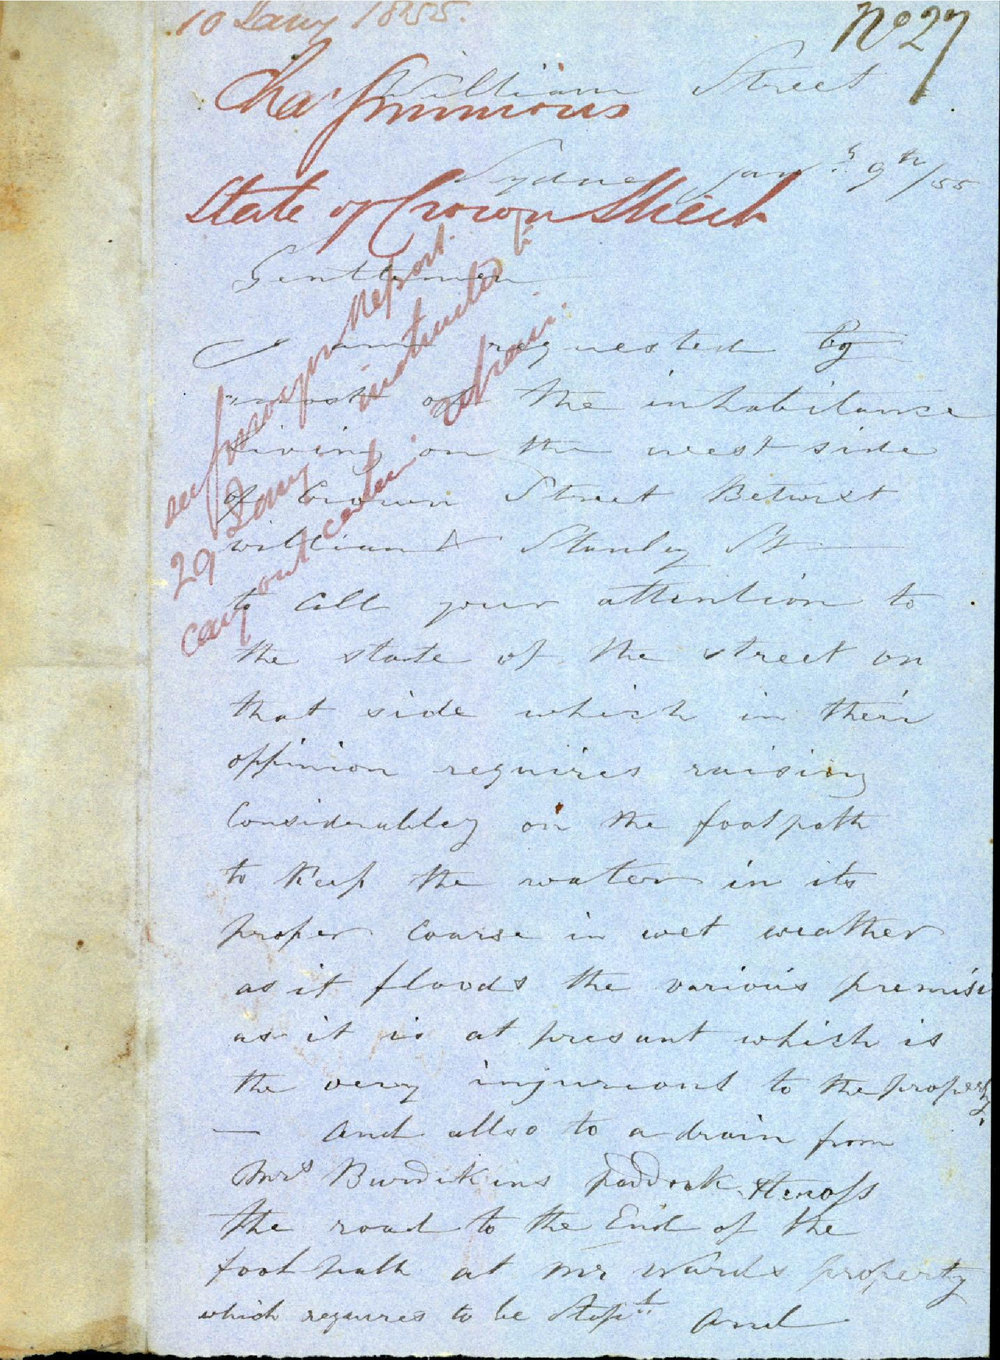 10 Jany 1855.
No 27
William Street
Chas Simmions
Sydney Jany 9th/55
State of Crown Street
Gentlemen
Report.
29 Jany
instructed to
carry out
a drain.
I am requested by
most of the inhabitance
living on the west side
of Crown Street Betwixt
william & Stanley St
to Call your attention to
the state of the street on
that side which in their
oppinion requires raising
Considerabley on the footpath
to Keep the water in its
proper Course in wet weather
as it floods the various premise
as it is at presant which is
the very injurious to the property.
— And allso to a drain from
Mrs Burdikins paddock
the road to the End of the
foot path at Mr Wards property
which requires to be Stopt And